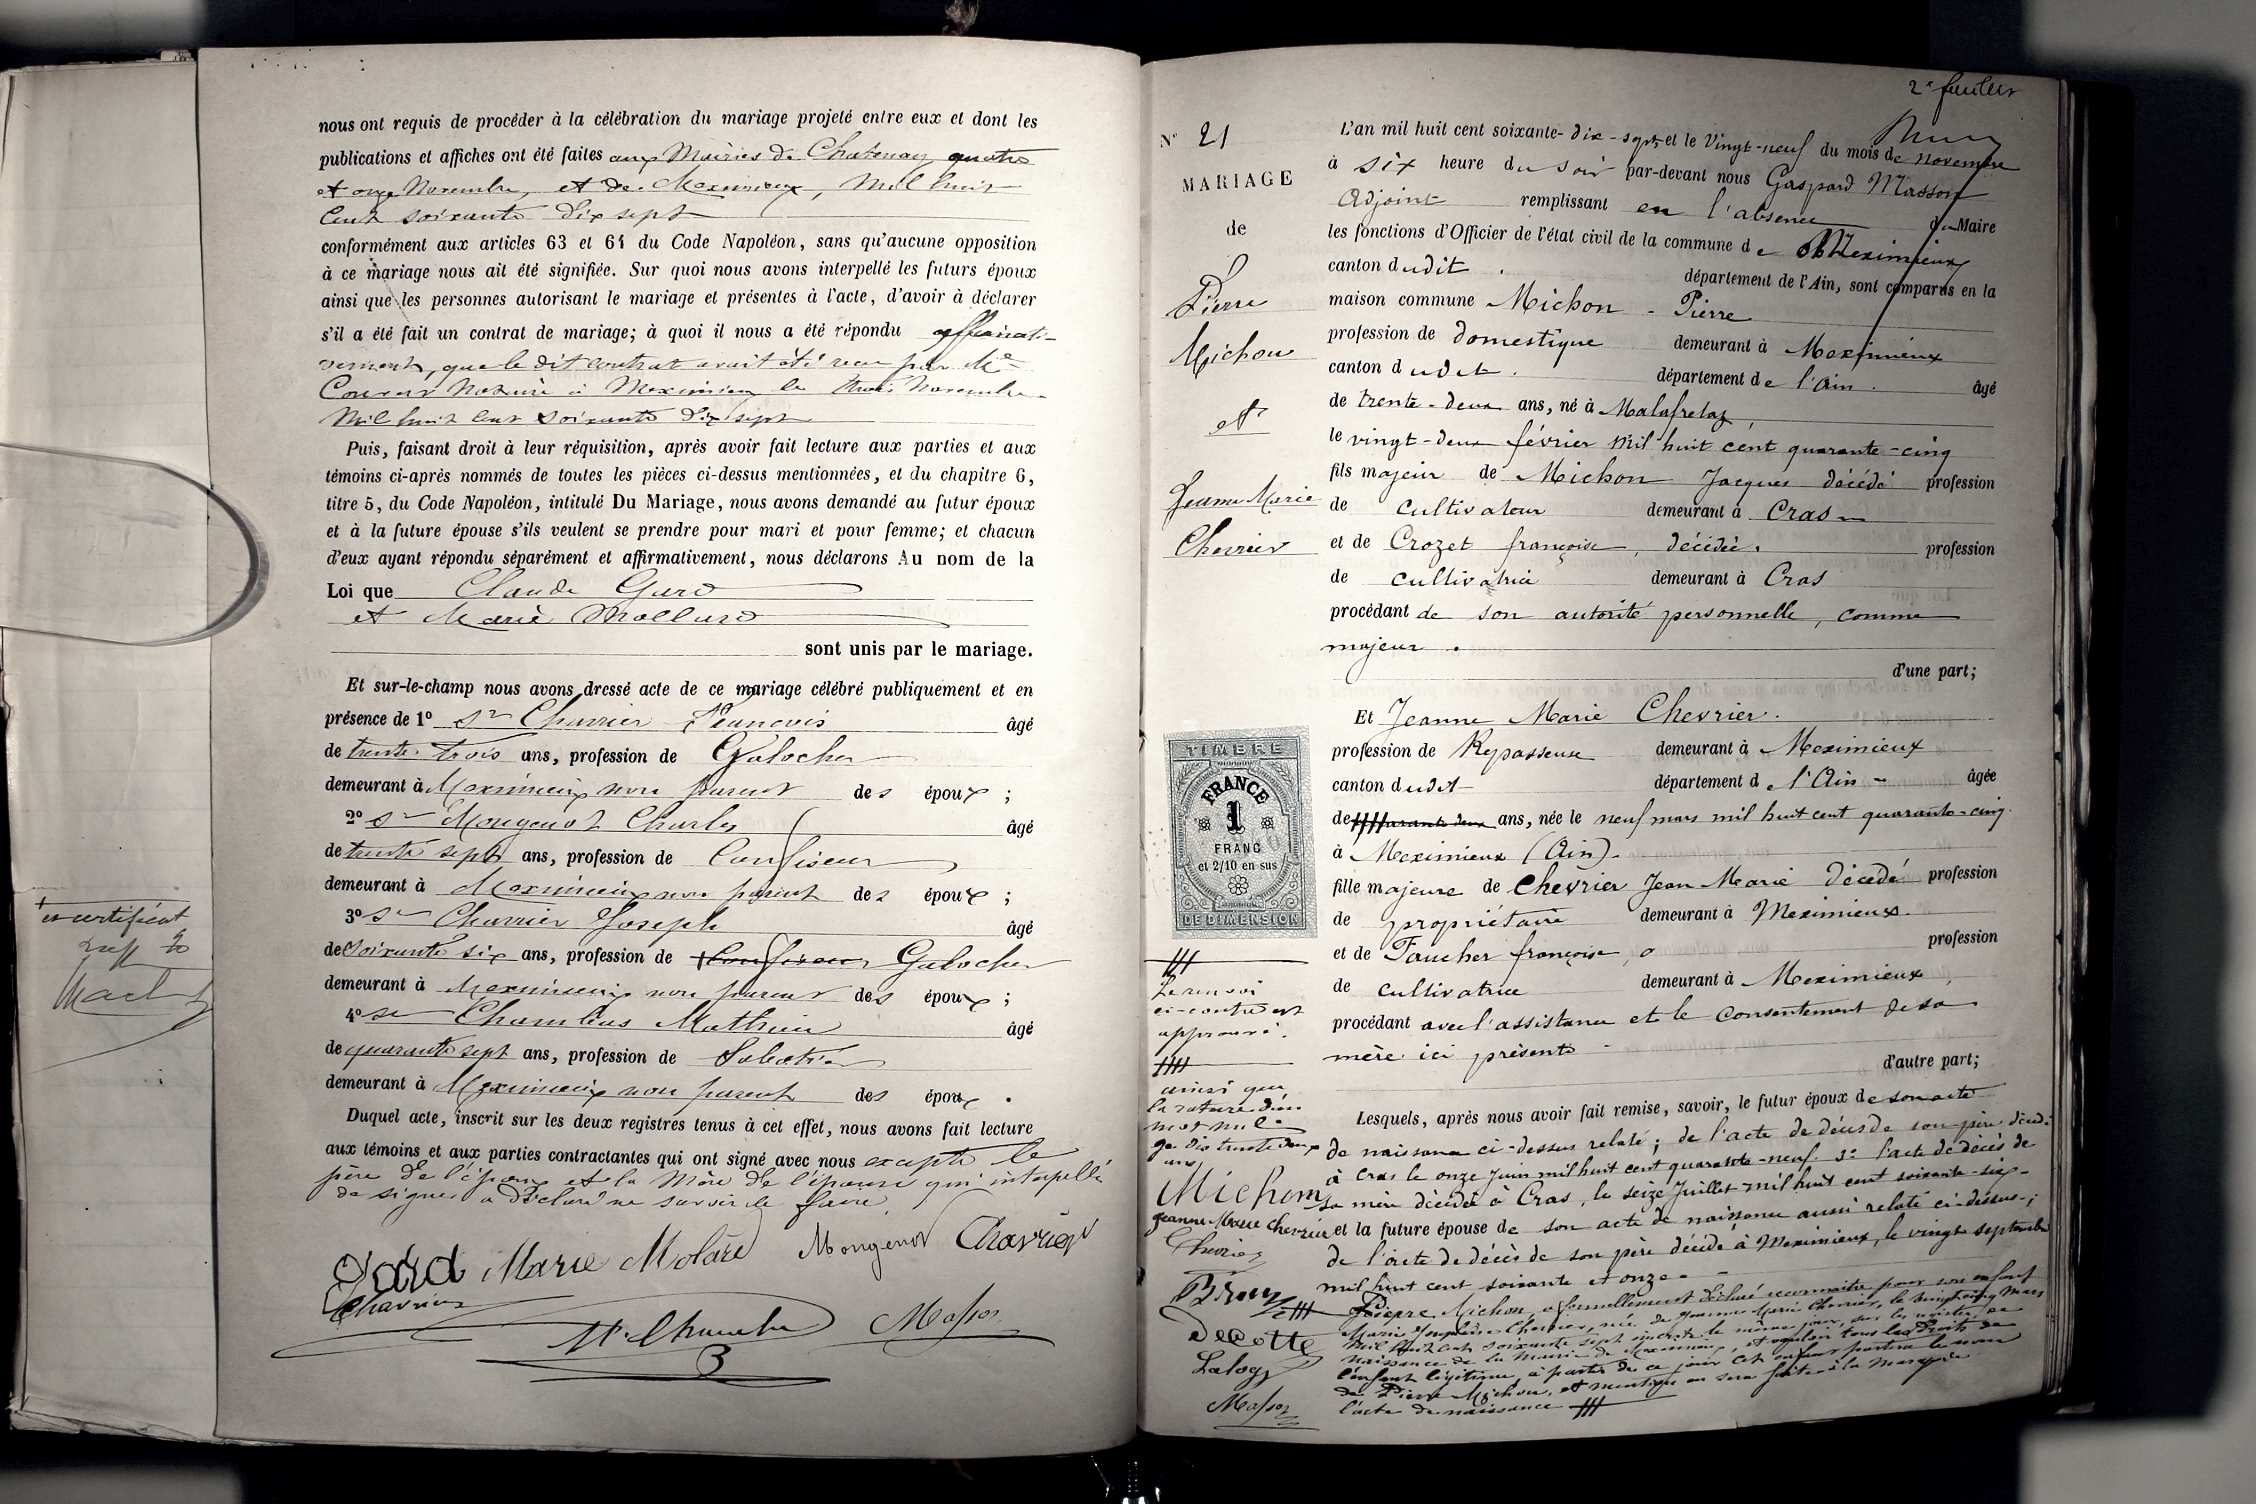 nous ont requis de procéder à la célébration du mariage projeté entre eux et dont les
publications et affiches ont été faites aux Mairies de Chatenay quatre
et onze Novembre, et de Meximieux, mil huit
cent soixante dix sept
conformément aux articles 63 et 64 du Code Napoléon, sans qu'aucune opposition
à ce mariage nous ait été signifiée. Sur quoi nous avons interpellé les futurs époux
ainsi que les personnes autorisant le mariage et présentes à l'acte, d'avoir à déclarer
s'il a été fait un contrat de mariage; à quoi il nous a été répondu affirmati-
vement, que le dit contrat avait été reçu par Me
Notaire à Meximieux le trois Novembre
mil huit cent soixante dix sept
Puis, faisant droit à leur réquisition, après avoir fait lecture aux parties et aux
témoins ci-après nommés de toutes les pièces ci-dessus mentionnées, et du chapitre 6,
titre 5, du Code Napoléon, intitulé Du Mariage, nous avons demandé au futur époux
et à la future épouse s'ils veulent se prendre pour mari et pour femme; et chacun
d'eux ayant répondu séparément et affirmativement, nous déclarons Au nom de la
Loi que Claude Gard
et Marie Mollard
sont unis par le mariage.
Et sur-le-champ nous avons dressé acte de ce mariage célébré publiquement et en
présence de 1° Sr Charrier François âgé
de trente trois ans, profession de Galocher
demeurant à Meximieux non parent des époux ;
2° Sr Mongenot Charles âgé
de trente sept ans, profession de Confiseur
demeurant à Meximieux non parent des époux ;
3° Sr Charrier Joseph âgé
de soixante six ans, profession de Confiseur Galocher
demeurant à Meximieux non parent des époux ;
4° Sr Mathieu âgé
de quarante sept ans, profession de
demeurant à Meximieux non parent des époux .
Duquel acte, inscrit sur les deux registres tenus à cet effet, nous avons fait lecture
aux témoins et aux parties contractantes qui ont signé avec nous excepté le
père de l'époux et la Mère de l'épouse qui interpellé
de signer a déclaré ne savoir le faire.
Gard Marie Molard Mongenot Charrier
Charrier
Masson
3
et certifient
2e feuillet
N° 21
MARIAGE
de
Pierre
Michon
et
Jeanne Marie
Chevrier
L'an mil huit cent soixante-dix-sept et le vingt-neuf du mois de novembre
à six heure du soir par-devant nous Gaspard Masson
Adjoint remplissant en l'absence du Maire
les fonctions d'Officier de l'état civil de la commune de Meximieux
canton dudit . département de l'Ain, sont comparus en la
maison commune Michon - Pierre
profession de domestique demeurant à Meximieux
canton dudit . département de l'Ain . âgé
de trente-deux ans, né à Malafretaz
le vingt-deux février mil huit cent quarante-cinq
fils majeur de Michon Jacques décédé profession
de cultivateur demeurant à Cras
et de Crozet françoise, décédée. profession
de cultivatrice demeurant à Cras
procédant de son autorité personnelle, comme
majeur .
d'une part;
Et Jeanne Marie Chevrier.
profession de Repasseuse demeurant à Meximieux
canton dudit département de l'Ain - âgée
de quarante deux ans, née le neuf mars mil huit cent quarante-cinq.
à Meximieux (Ain).
fille majeure de Chevrier Jean Marie décédé profession
de propriétaire demeurant à Meximieux.
et de Faucher françoise, profession
de cultivatrice demeurant à Meximieux,
procédant avec l'assistance et le consentement de sa
mère ici présente
d'autre part;
Lesquels, après nous avoir fait remise, savoir, le futur époux de son acte
de naissance ci-dessus relaté; de l'acte de décès de son père décédé
à Cras le onze Juin mil huit cent quarante-neuf. 3° l'acte de décès de
sa mère décédée à Cras, le seize Juillet mil huit cent soixante-six-
et la future épouse de son acte de naissance aussi relaté ci-dessus;
de l'acte de décès de son père décédé à Meximieux, le vingt septembre
mil huit cent soixante et onze.
Pierre Michon, a formellement déclaré reconnaître pour son enfant
Marie Chevrier, née de Jeanne Marie Chevrier, le vingt cinq Mars
mil huit cent soixante sept inscrite le même jour, sur les registres de
naissance de la Mairie de Meximieux, et vouloir tous les droits de
l'enfant légitime, à partir de ce jour cet enfant portera le nom
de Pierre Michon, et mention en sera faite à la marge de
l'acte de naissance
TIMBRE
FRANCE
1
FRANC
et 2/10 en sus
DE DIMENSION
Le renvoi
ci-contre est
approuvé.
ainsi que
la rature d'un
mot nul
trente deux
ans
Michon
Jeanne Marie Chevrier
Chevrier
Decotte
Laloge
Masson